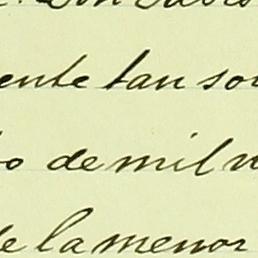 ente tan so
o de mil n
de la menor